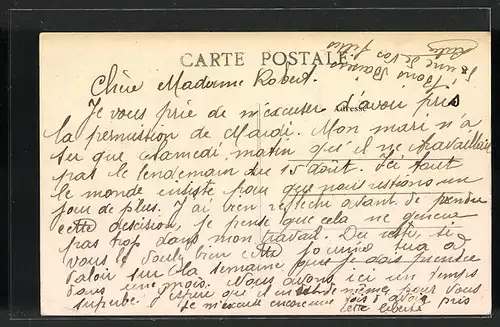 CARTE POSTALE
Adresse
Chère Madame Robert.
Je vous prie de m'excuser d'avoir pris
la permission de Mardi. Mon mari n'a
su que Samedi matin qu'il ne travaillait
pas le lendemain du 15 août. Ici tout
le monde insiste pour que nous restions un
jour de plus. J'ai bien réfléchi avant de prendre
cette décision, je pense que cela ne gênera
pas trop dans mon travail. Du reste, si
vous le voulez bien cette journée
valoir sur la semaine que je dois prendre
dans une mois. Nous avons ici un temps
superbe j'espère que il en de même pour vous
Je m'excuse encore une fois d'avoir pris
cette liberté
Bons Baisers
à une de vos filles